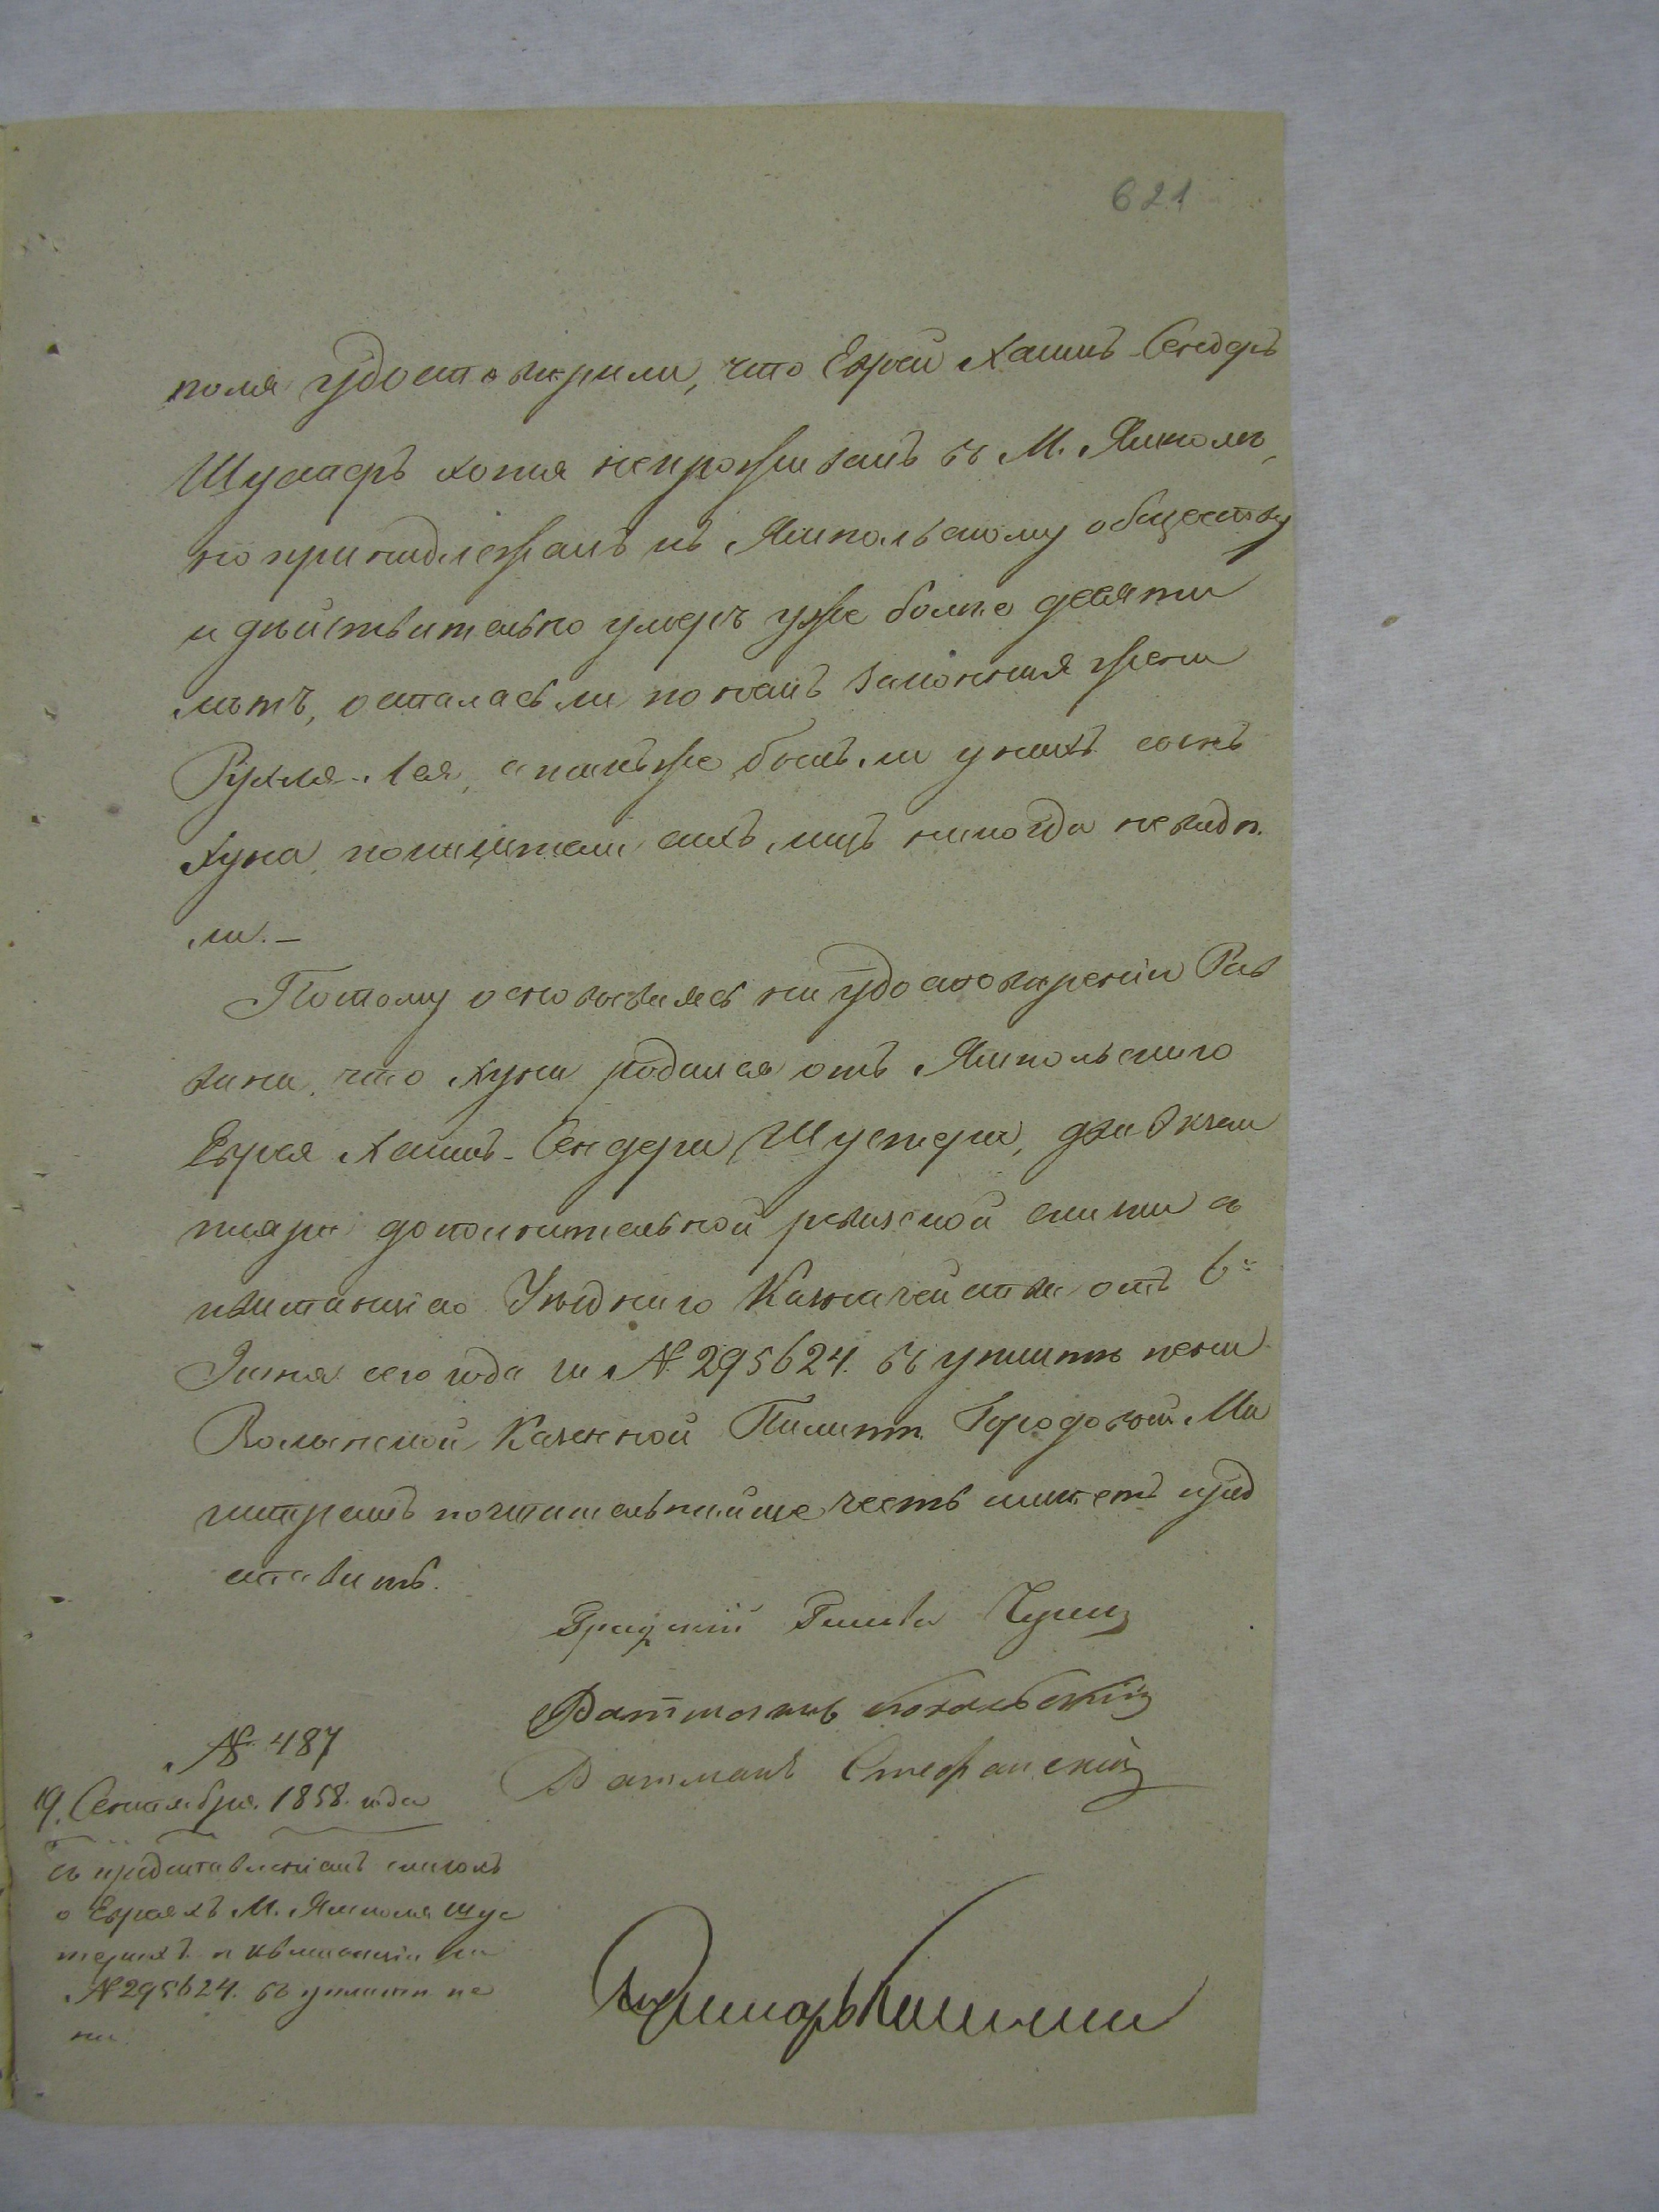 621
поля удостоверили, что Еврей Хаимъ-Сендеръ
Шустеръ хотя непроживалъ въ М. Ямполѣ,
но принадлежалъ къ Ямпольскому обществу
и дѣйствительно умеръ уже болѣе десяти
лѣтъ, осталась ли по немъ законная жена
Рухля-Лея, а также былъ ли у нихъ сынъ
Хуна, понятители сихъ лицъ никогда невидѣ-
ли.-
Потому основываясь на удостовереніи Рав
вина, что Хуна родился отъ Ямпольскаго
Еврея Хаимъ-Сендера Шустера, два Экзем
пляра дополнительной ревизской сказки съ
квитанціею Уѣзднаго Казначейства отъ 6го
Іюня сего года за №295624. въ уплатѣ пени
Волынской Казенной Палатѣ Городовой Ма
гистратъ почтительнѣйше честь имѣетъ пред
ставить.
Градскій Глава
Ратманъ
Ратманъ Стефанскій
№. 487
19. Сентября. 1858. года
съ представленіемъ сказокъ
о Евреяхъ М. Ямполя Шус
терахъ и квитанціи за
№295624. въ уплатѣ пе
ни